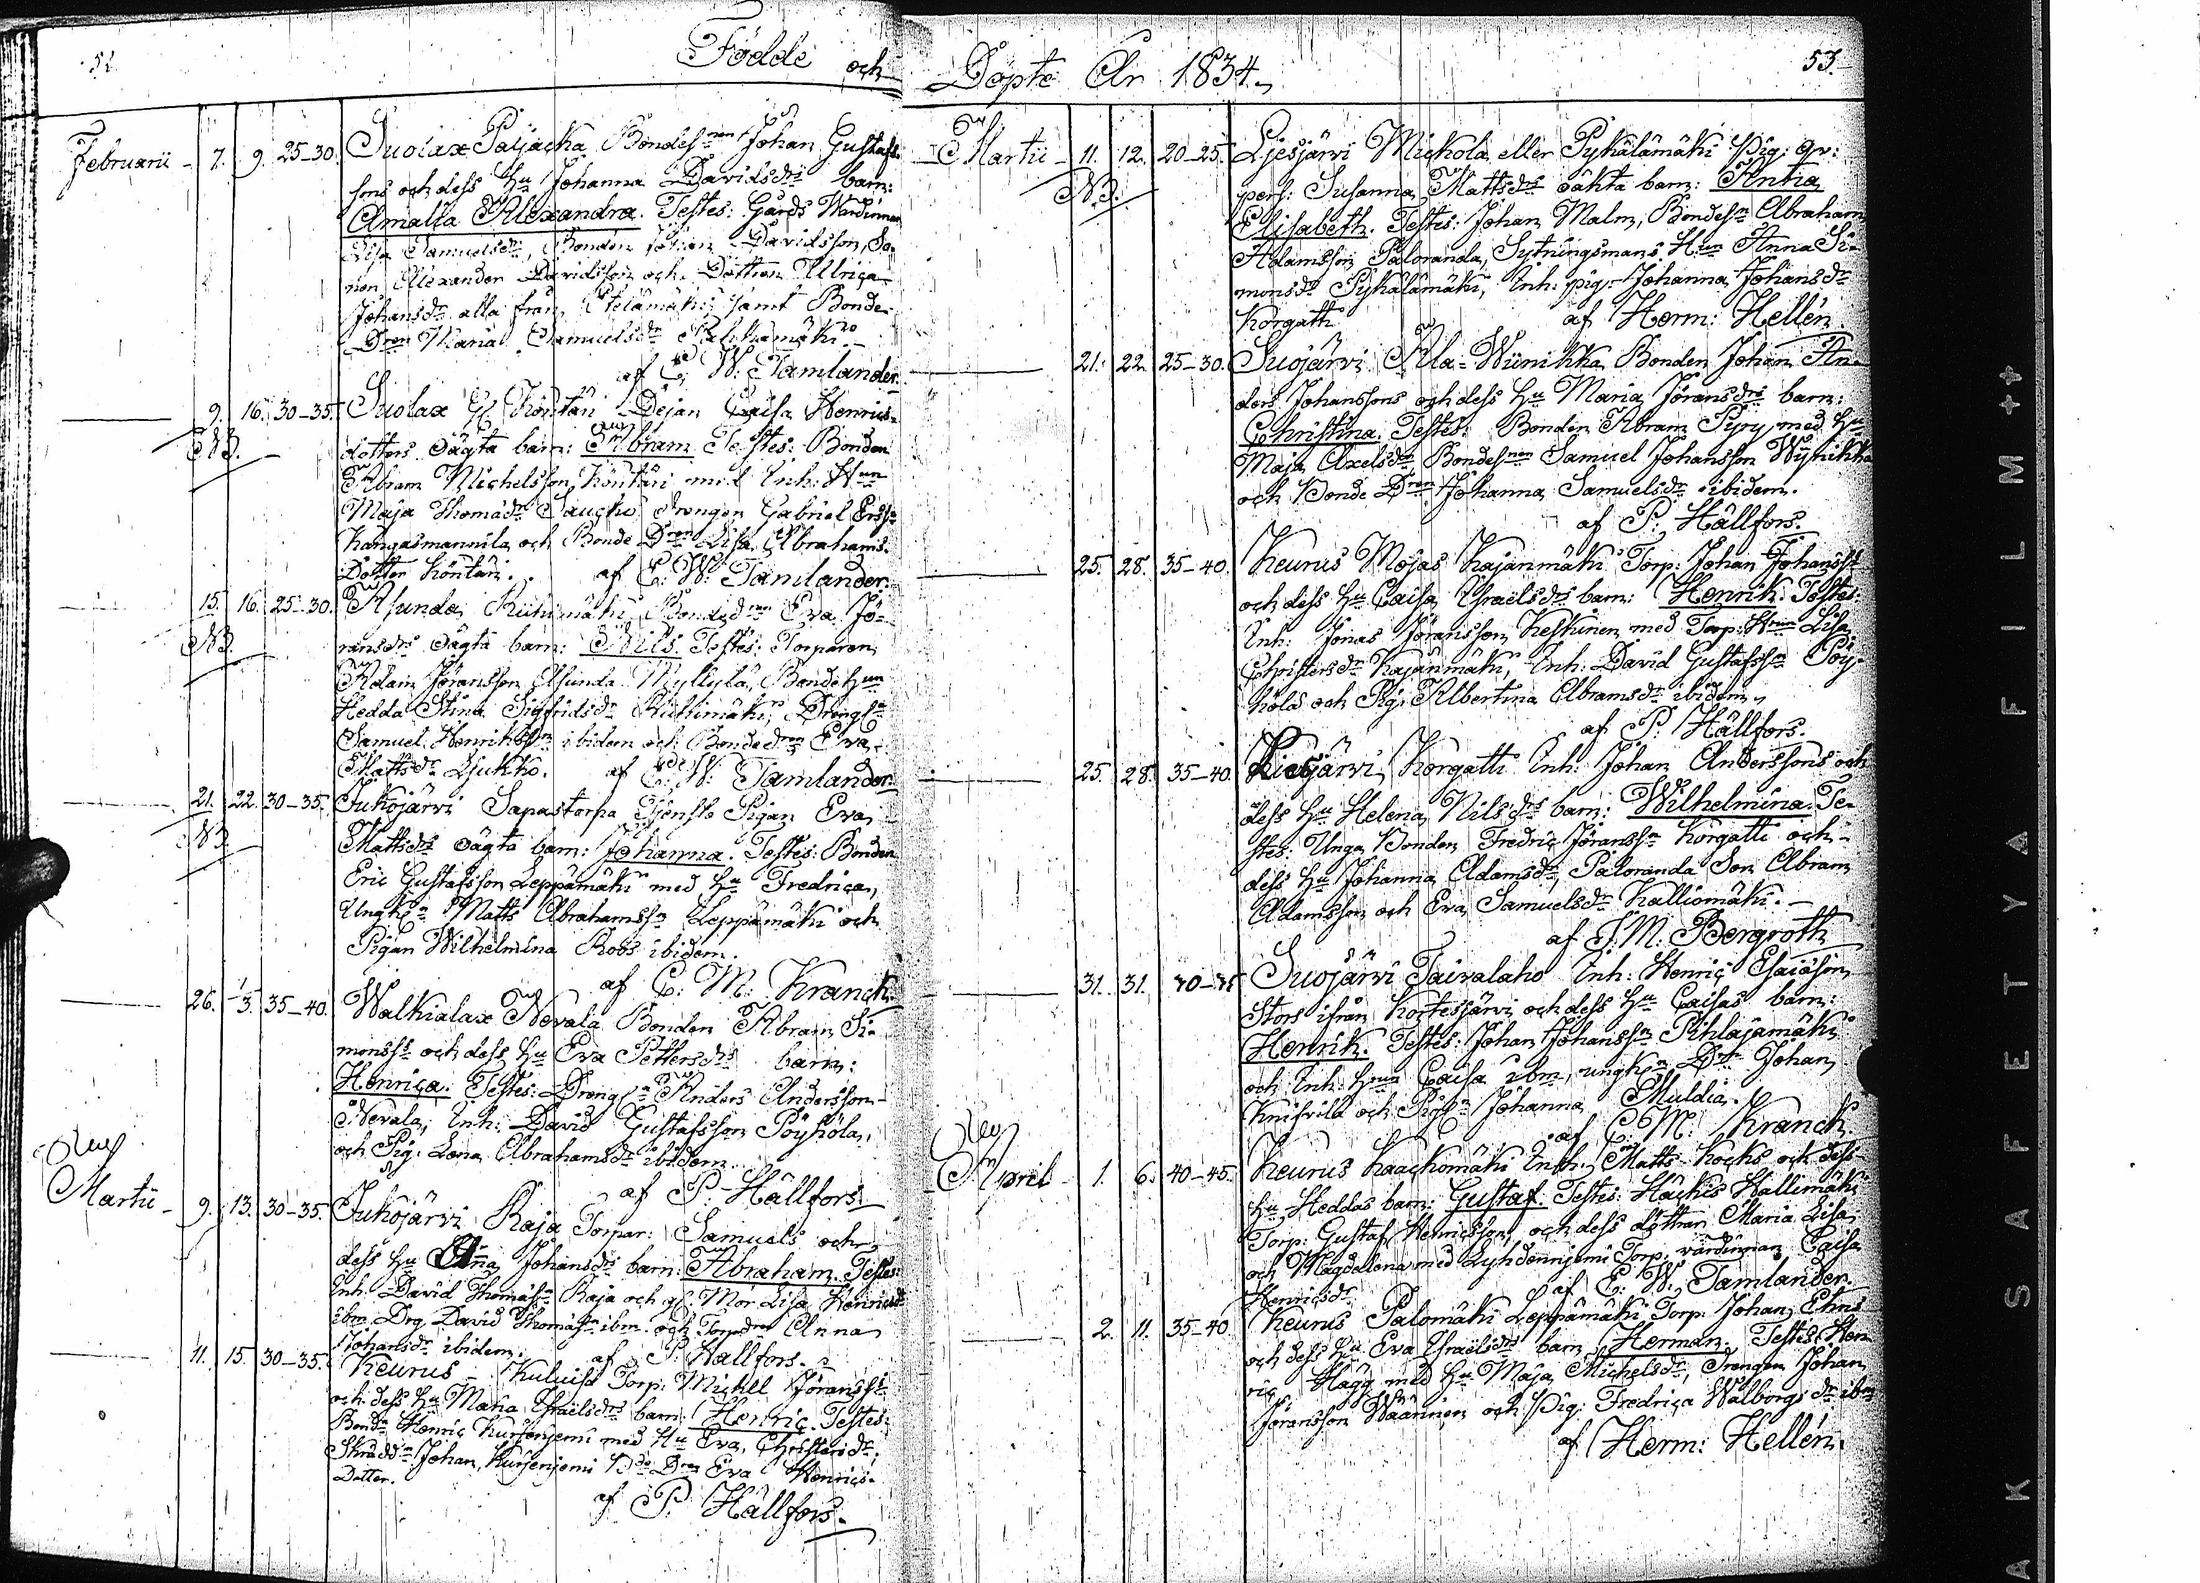 52.
Födde och
Februarii - 7. 9. 25-30. Suolax Paljacka Bondesonen Johan Gustafs
sons och dess Hu Johanna Davidsdrs barn:
Amalia Alexandra. Testes: Gårds Wärdinnan
Lisa Samuelsdr, Bonden Johan Davidsson, So-
nen Alexander Davidsson och Dottren Ulrica
Johansdr alla från samt Bonde
Dren Maria Samuelsdr
af C: W: Tamlander
9. 16. 30-35. Suolax Gl Köntäri Dejan Caisa Henrics-
NB. dotters oägta barn: Abram Testes: Bonden
Abram Michelsson Köntäri med Enh: Hun
Maja Thomædr Saucko Drengen Gabriel Erss:n
Kangasmannila och Bonde Dren Lisa Abrahams-
Dotter Köntäri. af C: W: Tamlander.
15. 16. 25-30. Asunda, Riihimäki Bondedren Eva Jö-
NB. ransdrs oägta barn: Nils. Testes: Torparen
Adam Jöransson Asunda Myllylä, Bonde Hun
Hedda Stina Sigfridsdr Riihimäki, Drengen
Samuel Henrikssn ibidem och Bondedren Eva
Mattsdr Ljukko. af C: W: Tamlander.
21. 22. 30-35. Jukojärvi Sapastorpa Tjenste Pigan Eva
NB. Mattsdrs oägta barn: Johanna. Testes: Bonden
Eric Gustafsson Leppämäki med Hu Fredrica,
Ungk:n Matts Abrahamssn Leppämäki och
Pigan Wilhelmina Roos ibidem.
af C: M: Kranck.
26. 1/3. 35-40. Walkialax Nevala Bonden Abram Si-
monss och dess Hu Eva Pettersdrs barn:
Henrica. Testes: Drengn Anders Andersson
Nevala, Enh: David Gustafsson Pöyhölä,
och Pig: Lena Abrahamsdr ibidem.
af P: Hällfors.
Martii - 9. 13. 30-35. Jukojärvi Raja Torpar: Samuels och
dess Hu Anna Johansdrs barn: Abraham. Testes:
Enh. David Thomæssn Raja och gl: Mor Lisa Henricsdr
ibm Drg. David Thomæssn ibm. och Torpdren Anna
Johansdr ibidem. af P: Hällfors.
11. 15. 30-35. Keurus - Torp: Michel Jöranss
och dess Hu Maria Israelsdrs barn: Henric. Testes:
Bondn Henric Kurjenjemi med Hu Eva Christersdr,
Skräddn Johan, Kurjenjemi Bde Dren Eva Henrics-
Dotter.
af P: Hällfors.
Döpte År 1834.
53.
Martii - 11. 12. 20-25. Liesjärvi Mickola eller Pykälämäki Pig: qv:
NB. pers: Susanna Mattsdrs oäkta barn: Antia
Elisabeth. Testes: Johan Malm, Bondesn Abraham
Adamsson Paloranda, Sytningsmans Hun Anna Si-
monsdr Pykälämäki, Enh: pig: Johanna Johansdr
Körgatti af Herm: Hellén.
21. 22. 25-30. Suojärvi Ala-Wiinikka Bonden Johan An-
ders Johanssons och dess Hu Maria Jöransdrs barn:
Christina. Testes: Bonden Abram Pyry med Hu
Maja Axelsdr, Bondesonen Samuel Johansson Wiinikka
och Bonde Dren Johanna Samuelsdr ibidem.
af P: Hällfors.
25. 28. 35-40. Keurus Mojas Kajanmäki Torp: Johan Johanss
och dess Hu Caisa Israelsdrs barn: Henrik. Testes:
Enh: Jonas Jöransson Keskinen med Torp: Hrun Lisa
Christersdr Kajanmäki, Enh: David Gustafssn Pöy-
hölä och Pig: Albertina Abramsdr ibidem.
af P: Hällfors.
25. 28. 35-40. Liesjärvi Körgatti Enh: Johan Anderssons och
dess Hu Helena Nilsdrs barn: Wilhelmina. Te-
stes: Unga Bonden Fredric Jöranssn Körgatti och
dess Hu Johanna Adamsdr, Paloranda Son Abram
Adamsson och Eva Samuelsdr Kalliomäki. -
af J: M: Bergroth
31. 31. Suojärvi Taivalaho Enh: Henric Esaiasson
Stors ifrån Kortesjärvi och dess Hu Caisas barn:
Henrik. Testes: Johan Johanssn Pihlajamäki
och Enh: Hrun Caisa ibm, ungk:n Johan
Knifvilä och Pign Johanna Muldia.
af C: M: Kranck.
April - 1. 6. 40-45. Keurus Kaackomäki Enh: Matts Kocks och dess
Hu Heddas barn: Gustaf. Testes: Häckis Hallimäki
Torp: Gustaf Henricsson, och dess döttrar Maria Lisa
och Magdalena med Lyhdenniemi Torp: värdinnan Caisa
Henricsdr af C: W: Tamlander.
2. 11. 35-40. Keurus Palomäki Leppämäki Torp: Johan
och dess Hu Eva Israelsdrs barn Herman. Testes: Hen-
ric Hägg med Hu Maja Michelsdr, Drengen Johan
Jöransson Wäänänen och Pig: Fredrica Walborgsdr ibm
af Herm: Hellén.
AK SAFETY AFILM ++